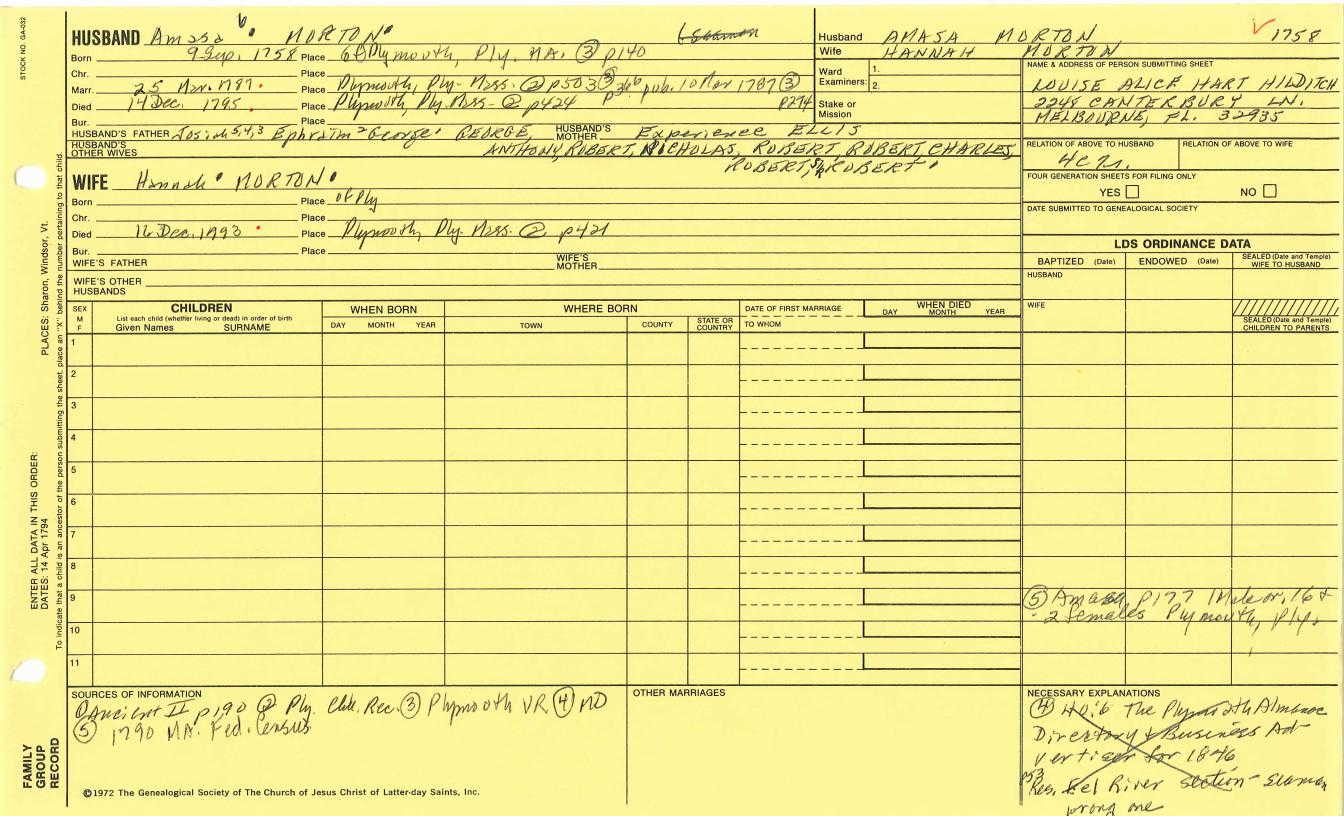 STOCK NO. GA-032
HUSBAND Amasa 6 MORTON
Born 9 Sep. 1758 Place Plymouth, Ply. MA. ③ p140
Chr. Place
Marr. 25 Mar. 1787. Place Plymouth, Ply. Mass. ② p503 ③ pub. 10 Mar 1787 ③
Died 14 Dec. 1795. Place Plymouth, Ply. Mass. ② p424 p274
Bur. Place
HUSBAND'S FATHER Josiah 5,4,3 Ephraim 2 George 1 GEORGE, HUSBAND'S MOTHER Experience ELLIS
HUSBAND'S OTHER WIVES ANTHONY, ROBERT, NICHOLAS, ROBERT, ROBERT CHARLES,
ROBERT, ROBERT
WIFE Hannah MORTON
Born Place of Ply
Chr. Place
Died Dec. 1793 Place Plymouth, Ply. Mass. ② p421
Bur. Place
WIFE'S FATHER WIFE'S MOTHER
WIFE'S OTHER HUSBANDS
Husband AMASA MORTON 1758
Wife HANNAH MORTON
Ward Examiners: 1.
2.
Stake or Mission
NAME & ADDRESS OF PERSON SUBMITTING SHEET
LOUISE ALICE HART HILDITCH
2248 CANTERBURY LN.
MELBOURNE, FL. 32935
RELATION OF ABOVE TO HUSBAND RELATION OF ABOVE TO WIFE
4c
FOUR GENERATION SHEETS FOR FILING ONLY
YES NO
DATE SUBMITTED TO GENEALOGICAL SOCIETY
LDS ORDINANCE DATA
BAPTIZED (Date) ENDOWED (Date) SEALED (Date and Temple) WIFE TO HUSBAND
HUSBAND
WIFE
SEALED (Date and Temple) CHILDREN TO PARENTS
SEX M F CHILDREN WHEN BORN WHERE BORN DATE OF FIRST MARRIAGE WHEN DIED
List each child (whether living or dead) in order of birth
Given Names SURNAME DAY MONTH YEAR TOWN COUNTY STATE OR COUNTRY TO WHOM DAY MONTH YEAR
1
2
3
4
5
6
7
8
9
10
11
⑤ Amasa p177 1 Male or 16 +
2 females Plymouth, Ply.
SOURCES OF INFORMATION
① Ancient II p190 ② Ply. Chh. Rec. ③ Plymouth VR ④ no
⑤ 1790 MA. Fed. Census
OTHER MARRIAGES
NECESSARY EXPLANATIONS
④ The Plymouth Almanac
Directory & Business Ad-
vertiser for 1846
p53 Res. Eel River section - Seaman
wrong one
©1972 The Genealogical Society of The Church of Jesus Christ of Latter-day Saints, Inc.
FAMILY GROUP RECORD
ENTER ALL DATA IN THIS ORDER:
DATES: 14 Apr 1794
PLACES: Sharon, Windsor, Vt.
To indicate that a child is an ancestor of the person submitting the sheet, place an "X" behind the number pertaining to that child.